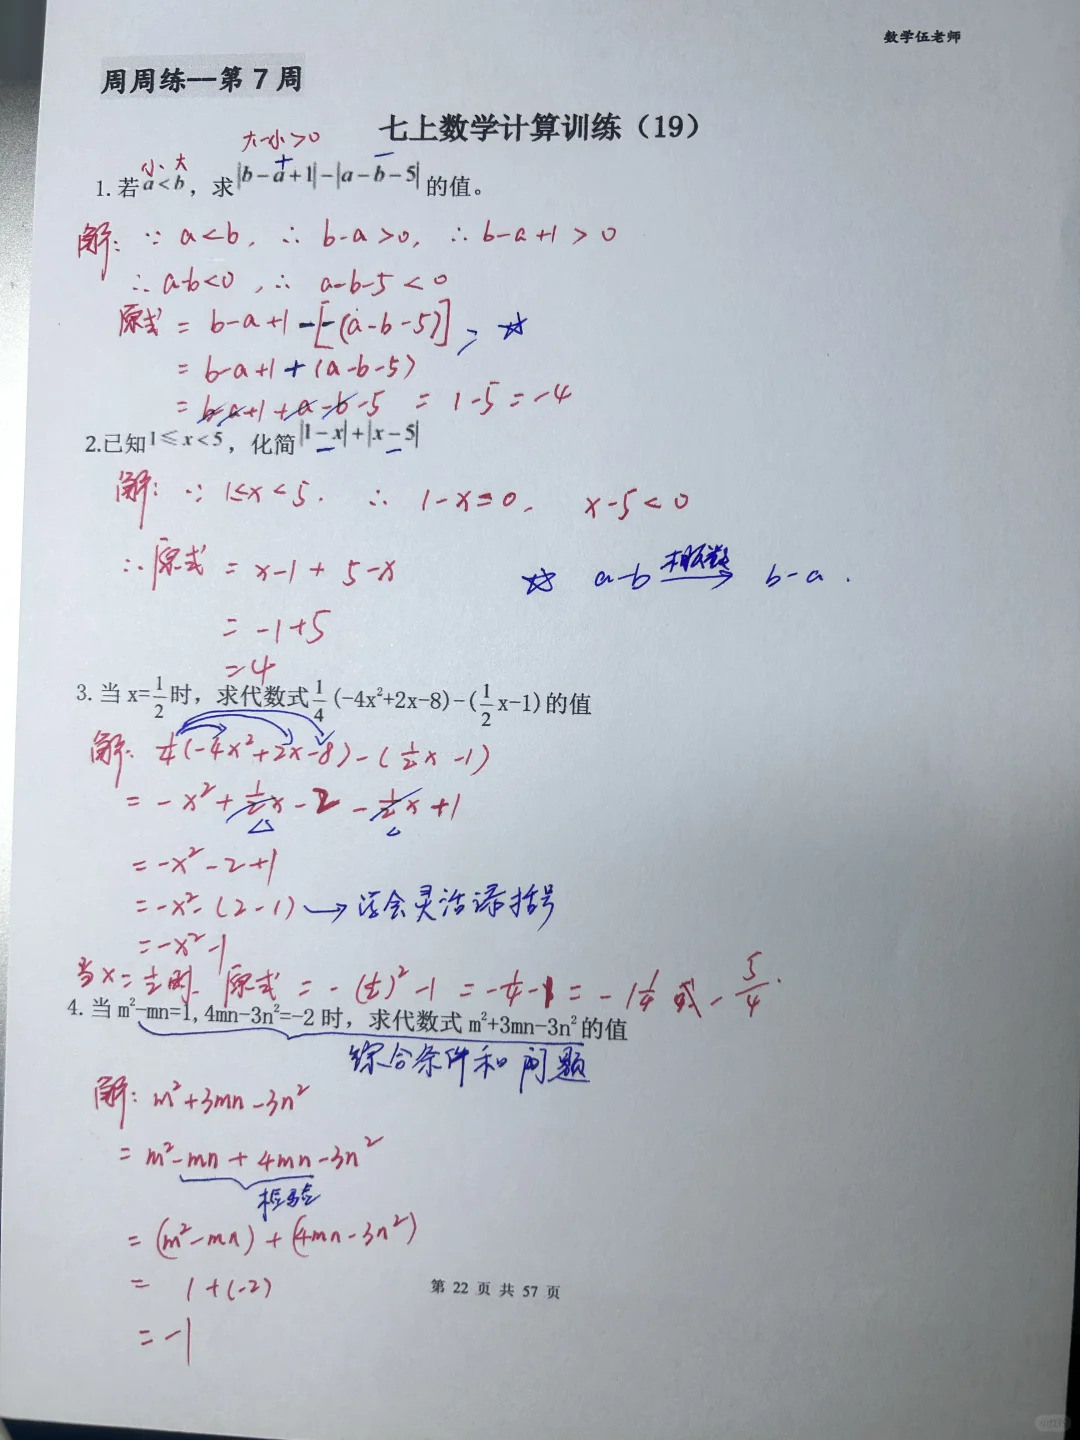 数学伍老师
周周练——第 7 周
七上数学计算训练（19）
大-小>0
小 大 + −
1. 若 a<b ，求 |b−a+1|−|a−b−5| 的值。
解: ∵ a<b, ∴ b-a>0, ∴ b-a+1 > 0
∴ a-b<0 , ∴ a-b-5 < 0
原式 = b-a+1 -[-(a-b-5)] ☆
= b-a+1 + (a-b-5)
= b-a+1 + a-b-5 = 1-5 = -4
2.已知 1≤x<5 ，化简 |1−x|+|x−5|
解: ∵ 1≤x<5. ∴ 1-x≤0, x-5<0
∴ 原式 = x-1 + 5-x
☆ a-b 相反数→ b-a .
= -1+5
=4
3. 当 x=1/2 时，求代数式 1/4 (-4x²+2x-8)-(1/2 x-1) 的值
解: 1/4(-4x²+2x-8)-(1/2x-1)
= -x²+1/2x-2-1/2x+1
=-x²-2+1
=-x²-(2-1) → 学会灵活添括号
=-x²-1
当x=1/2时, 原式 = -(1/2)²-1 = -1/4-1 = -1 1/4 或 -5/4.
4. 当 m²-mn=1, 4mn-3n²=-2 时，求代数式 m²+3mn-3n² 的值
综合条件和问题
解: m²+3mn-3n²
= m²-mn + 4mn-3n²
检验
= (m²-mn) + (4mn-3n²)
= 1+(-2)
= -1
第 22 页 共 57 页